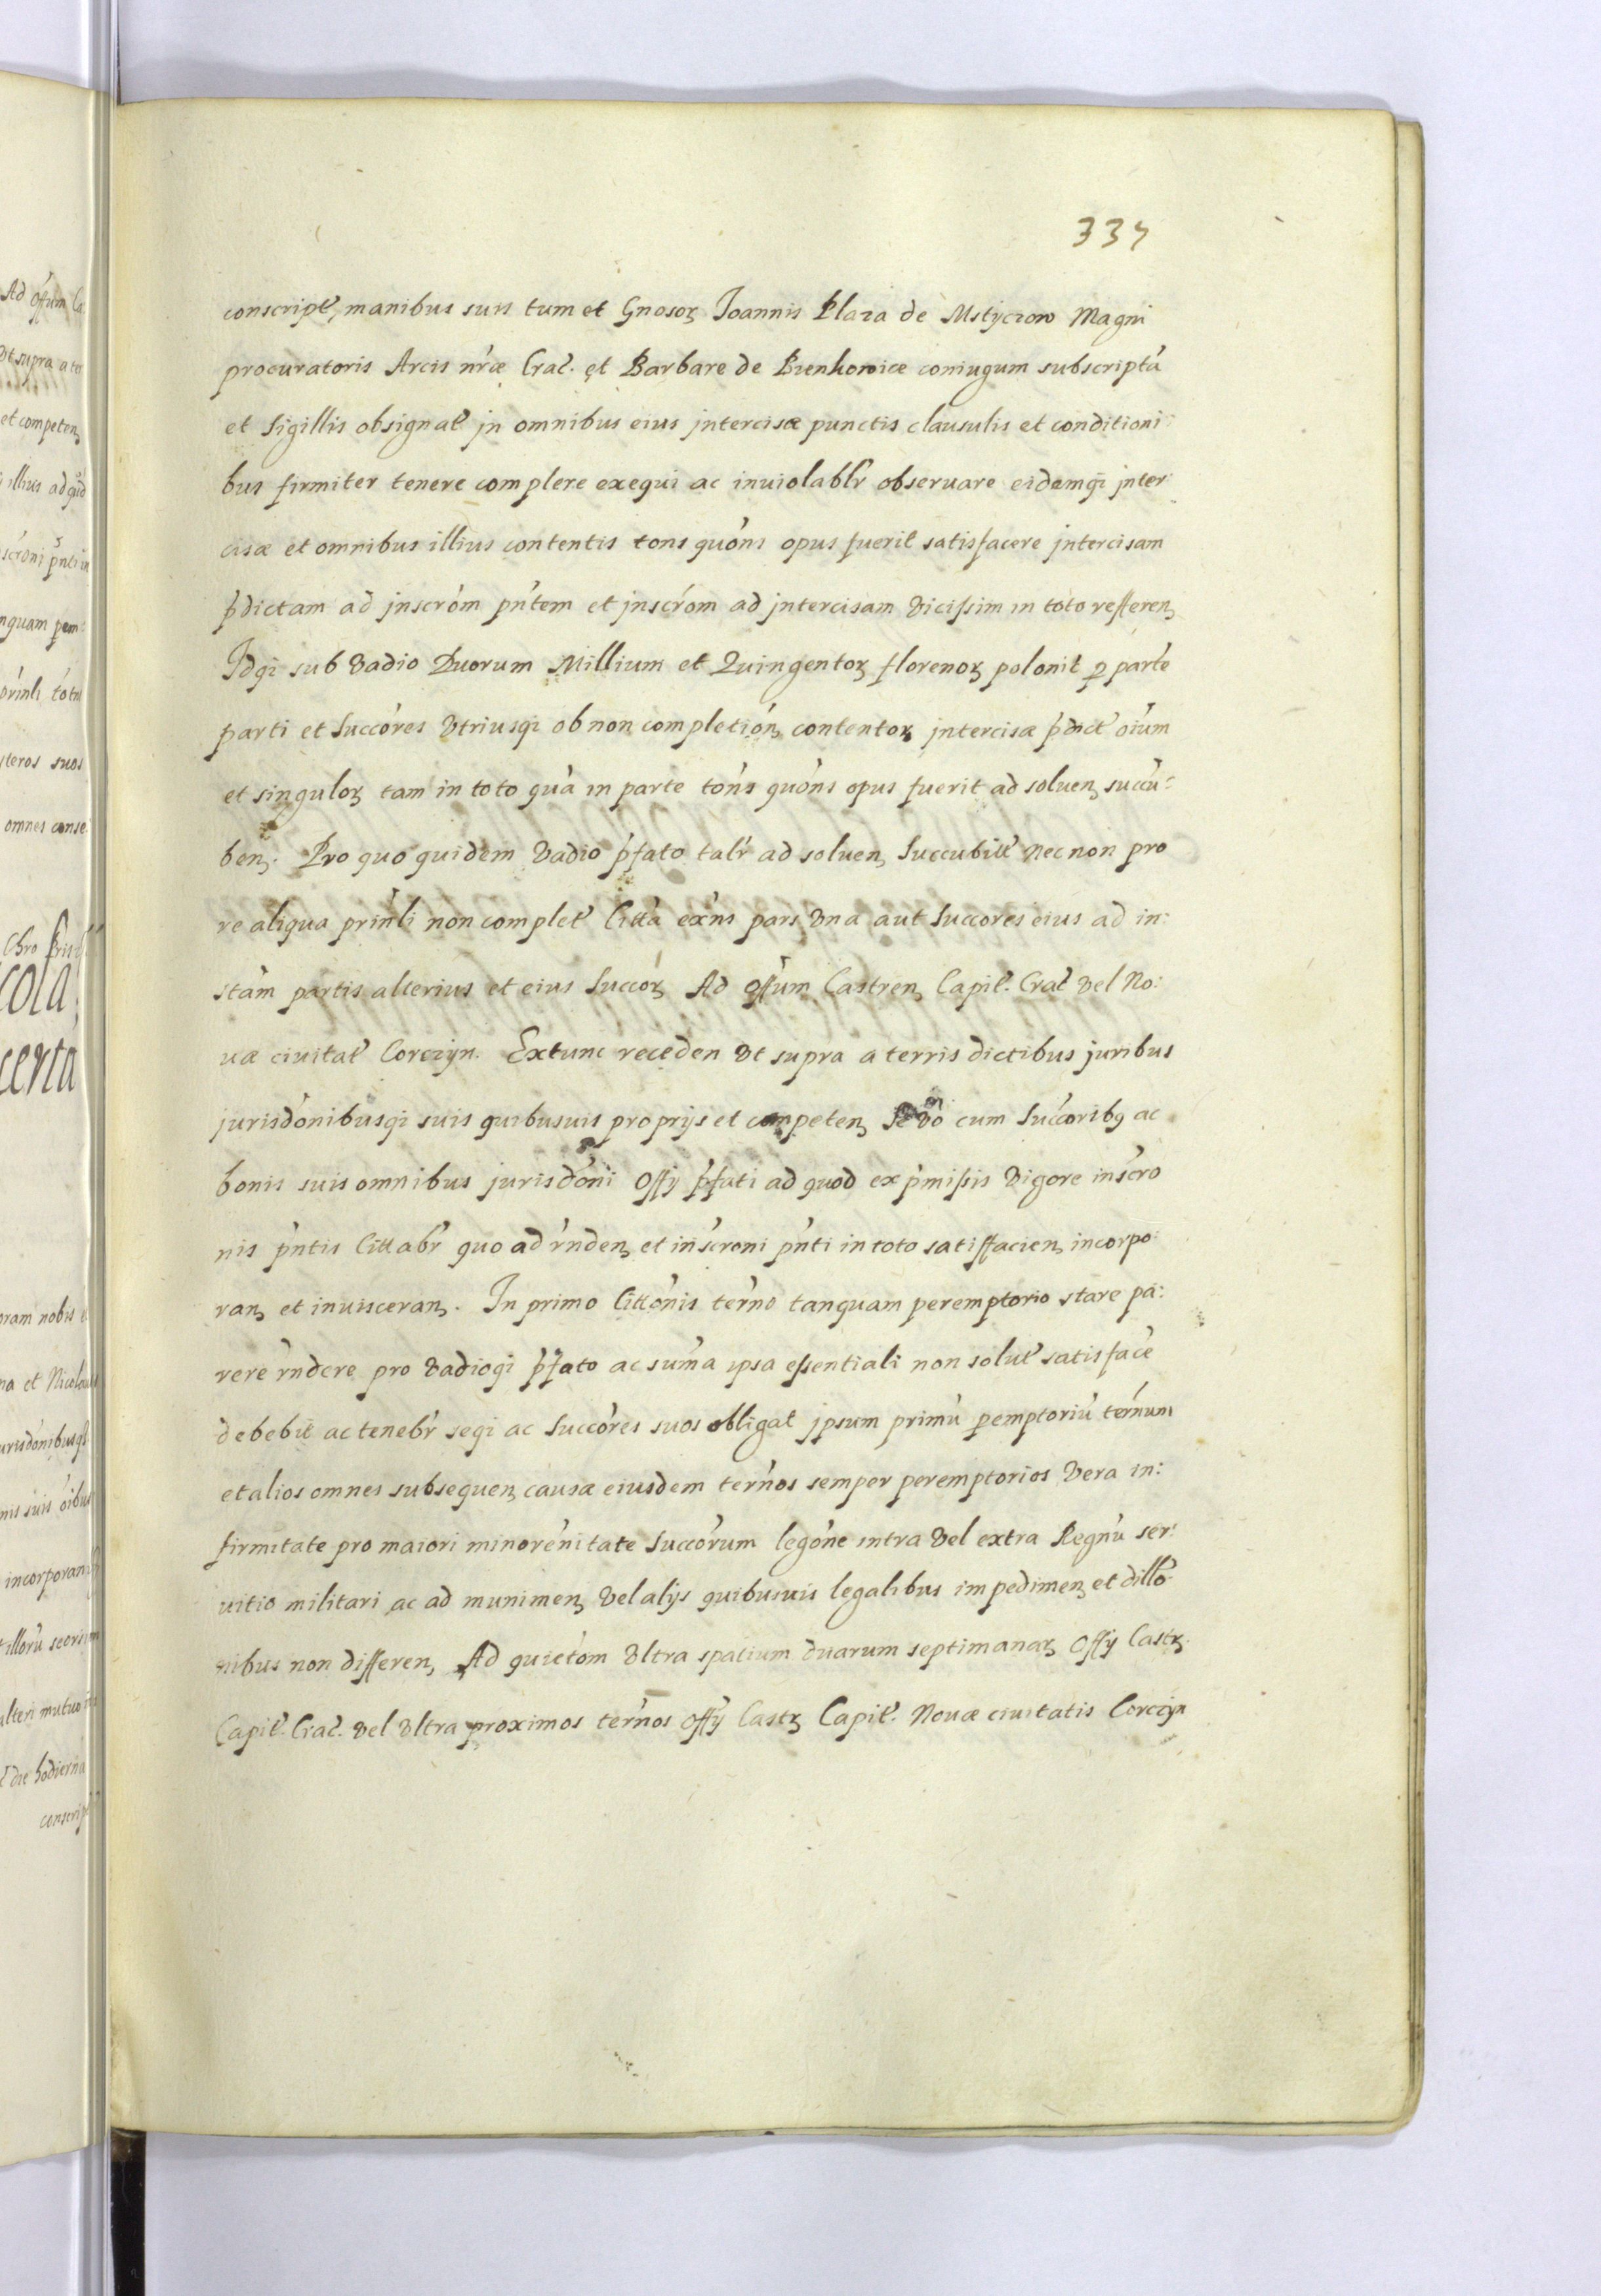 337
conscript̃, manibus suis tum et Gnosoꝝ Joannis Plaza de Mstyczow Magni
procuratoris Arcis nr̃æ Crac̃. et Barbare de Bienkowice coniugum subscriptã
et sigillis obsignat̃ jn omnibus eius jntercisæ punctis clausulis et conditioni:
bus firmiter tenere complere exequi ac inuiolablr̃ obseruare eidemq̃ jnter:
cisæ et omnibus illius contentis tons quõns opus fuerit satisfacere jntercisam
p̃dictam ad jnscrõm pñtem et jnscrõm ad jntercisam vicissim in toto refferen,
Idq̃ sub vadio Duorum Millium et Quingentoꝝ florenoꝝ polonit̃ ꝑ parte
parti et succõres vtriusq̃ ob non completioñ, contentoꝝ jntercisæ p̃dict̃ oĩum
et singuloꝝ tam in toto quã in parte tõns quõns opus fuerit ad soluen, succũ:
ben,. Pro quo quidem vadio p̃fato talr̃ ad soluen, succubit̃ nec non pro
re aliqua prinl̃i non complet̃ Citt̃a ex̃ns pars vna aut succores eius ad in:
stãm partis alterius et eius succoꝝ Ad Off̃um Castren, Capit̃. Crac̃ vel No:
uæ ciuitat̃ Corczyn. Extunc receden vt supra a terris dictibus juribus
jurisdõnibusq̃ suis quibusuis proprijs et competen, se võ cum succoribꝯ ac
bonis suis omnibus jurisdõni Offy p̃fati ad quod ex p̃missis vigore inscro
nis pñtis Cittabr̃ quo ad r̃nden, et inscroni pñti in toto satisfacien, incorpo:
ran, et inuisceran,. In primo Cittõnis ter̃no tanquam peremptorio stare pa:
rere r̃ndere pro vadioq̃ p̃fato ac sum̃a ipsa essentiali non solut̃ satisfacẽ
debebit ac tenebr̃ seq̃ ac succõres suos obligat jpsum primũ ꝑemptoriũ ter̃num
et alios omnes subsequen, causæ eiusdem ter̃nos semper peremptorios vera in:
firmitate pro maiori minorẽnitate succõrum legõne intra vel extra Regnũ ser:
uitio militari ac ad munimen, vel alijs quibusuis legalibus impedimen, et dillõ
nibus non differen, Ad quietõm vltra spatium duarum septimanaꝝ Offy Castꝝ
Capit̃. Crac̃. vel vltra proximos ter̃nos Offy Castꝝ Capit̃. Nouæ ciuitatis Corczyn